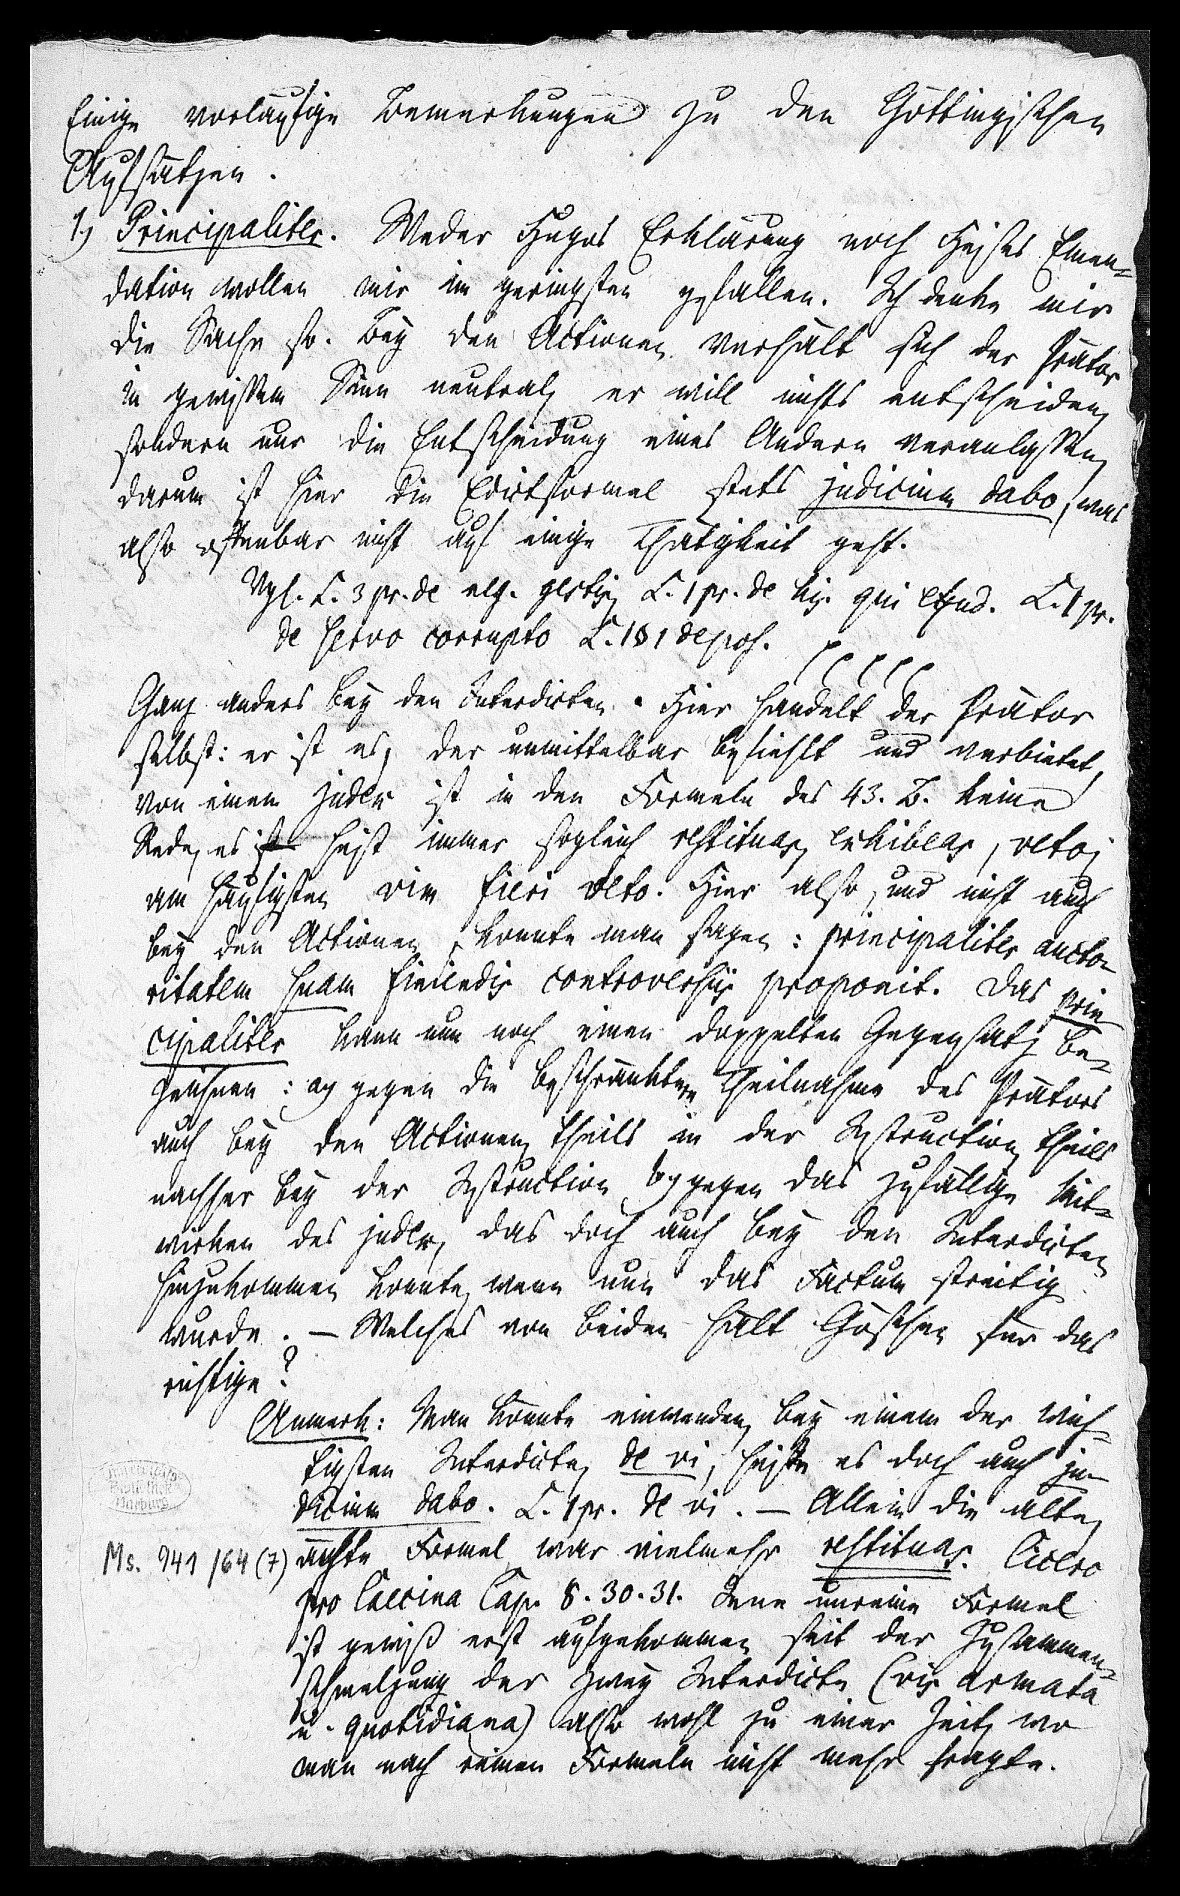 Einige vorläufige Bemerkungen zu den Göttingischen
Aufsätzen.
1) Principaliter. Weder Hugos Erklärung noch Heises Emen=
dation wollen mir im geringsten gefallen. Ich denke mir
die Sache so. Bey den Actionen verhält sich der Prätor
in gewissem Sinn neutral, er will nichts entscheiden,
sondern nur die Entscheidung eines Andern veranlassen,
darum ist hier die Edictsformel stets judicium dabo, was
also offenbar nicht auf einige Thätigkeit geht.
Vgl. L. 3 pr. de neg. gestis, L. 1 pr. de his qui effud. L. 1 pr.
de servo corrupto L. 1 § 1 depos.
Ganz anders bey den Interdicten. Hier handelt der Prätor
selbst: er ist es, der unmittelbar befiehlt und verbietet,
von einem judex ist in den Formeln des 43. B. keine
Rede, es ist heist immer sogleich restituas, exhibeas, veto,
am häufigsten vim fieri veto. Hier also, und nicht auch
bey den Actionen, konnte man sagen: principaliter aucto=
ritatem suam finiendis controversiis proponit. Das prin
cipaliter kann nun noch einen doppelten Gegensatz be=
zeichnen: a) gegen die beschränktere Theilnahme des Prätors
auch bey den Actionen, theils in der Instruction, theils
nachher bey der Instruction, b) gegen das zufällige Mit=
wirken des judex, das doch auch bey den Interdicten
hinzukommen konnte, wenn nun das Factum streitig
wurde. – Welches von beiden hält Göschen für das
richtige?
Anmerk: Man könnte einwenden, bey einem der wich=
tigsten Interdicte, de vi, heiße es doch auch ju=
dicium dabo. L. 1 pr. de vi. – Allein die alte,
ächte Formel war vielmehr restituas. Cicero
pro Caecina Cap. 8. 30. 31. Jene unreine Formel
ist gewiß erst aufgekommen seit der Zusammen=
schmelzung der zwey Interdicte (vis armata
u. quotidiana) also wohl zu einer Zeit, wo
man nach reinen Formeln nicht mehr fragte.
Ms. 941/64 (7)